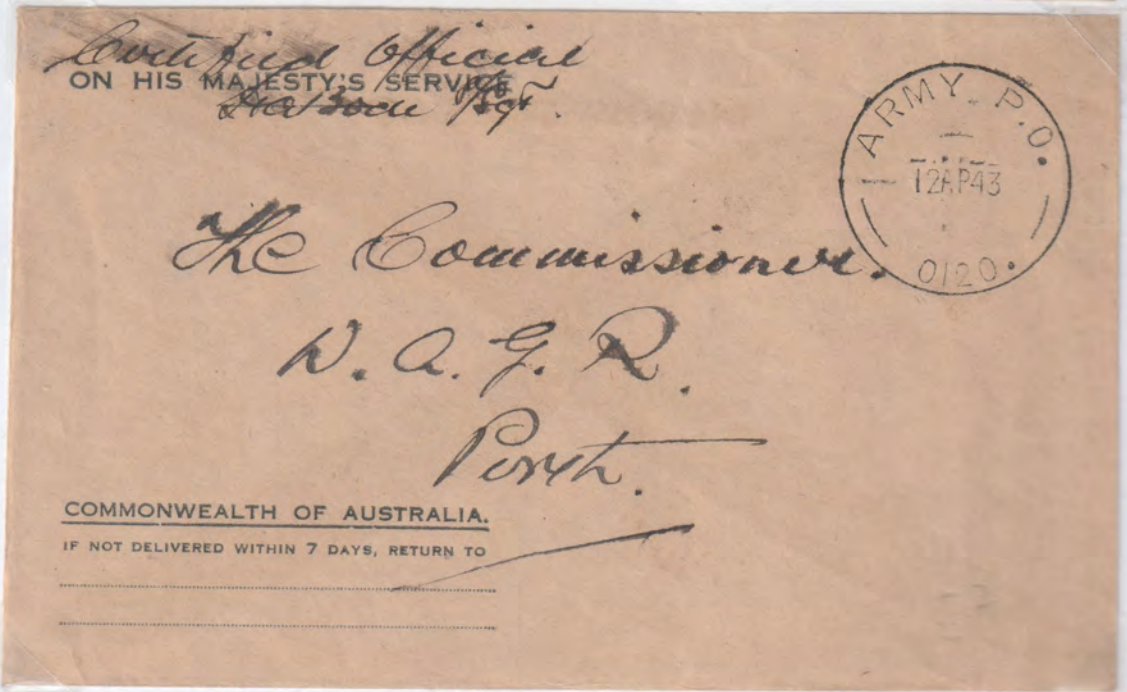 Certified Official
ON HIS MAJESTY'S SERVICE
ARMY. P.O.
12AP43
0120.
The Commissioner.
W. A. G. R.
Perth.
COMMONWEALTH OF AUSTRALIA.
IF NOT DELIVERED WITHIN 7 DAYS, RETURN TO